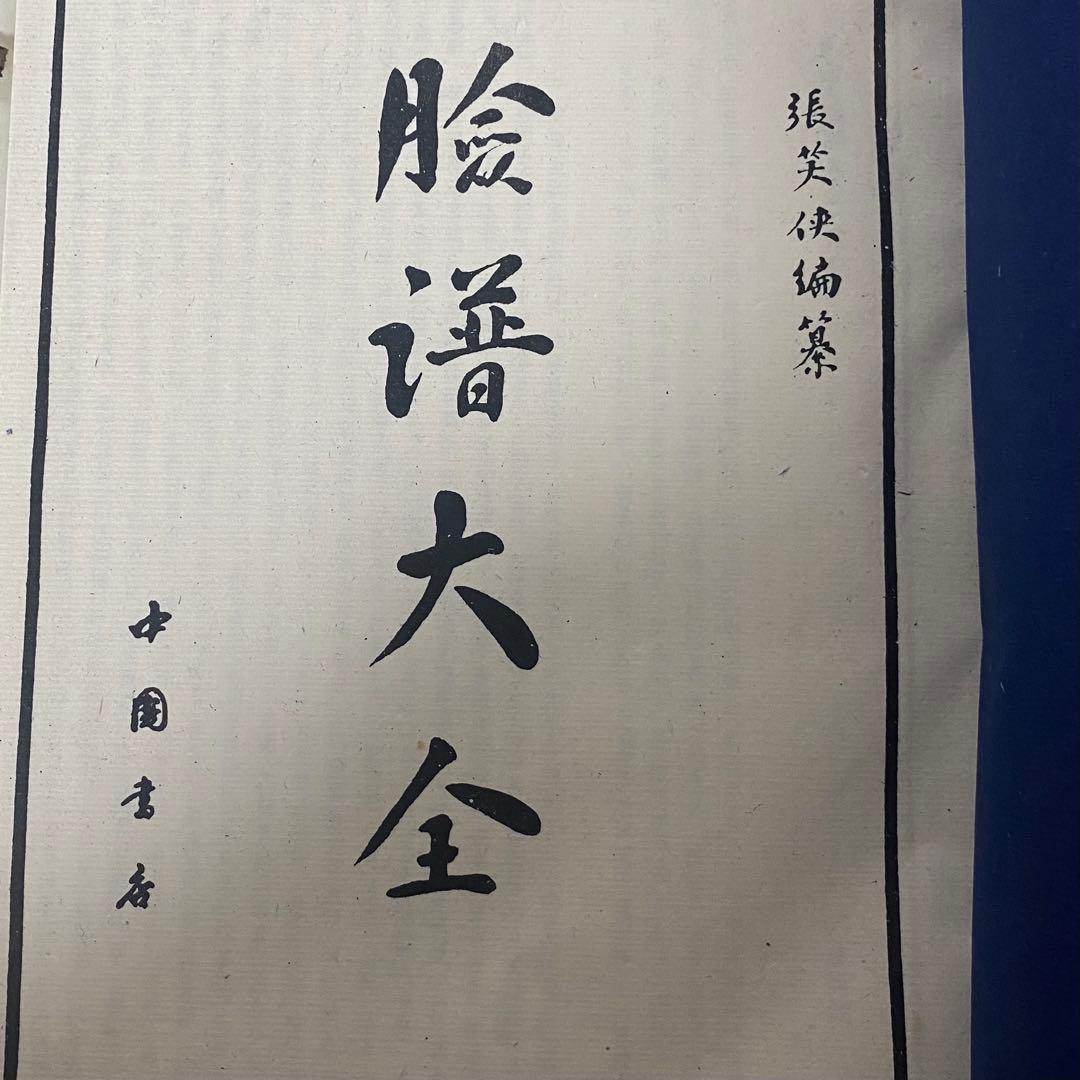 張笑俠編纂
臉譜大全
中國書店